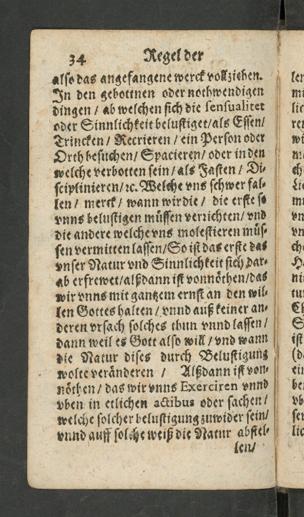 34 Regel der
also das angefangene werck vollziehen.
In den gebottnen oder nothwendigen
dingen / ab welchen sich die sensualitet
oder Sinnlichkeit belustiget / als Essen /
Trincken / Recrieren / ein Person oder
Orth besuchen / Spacieren / oder in den
welche verbotten sein / als Fasten / Di-
sciplinieren / ꝛc. Welche vns schwer fal-
len / merck / wann wir die / die erste so
vnns belustigen müssen verrichten / vnd
die andere welche vns molestieren müs-
sen vermitten lassen / So ist das erste das
vnser Natur vnd Sinnlichkeit sich dar-
ab erfrewet / alßdann ist vonnöthen / das
wir vnns mit gantzem ernst an den wil-
len Gottes halten / vnnd auß keiner an-
deren vrsach solches thun vnnd lassen /
dann weil es Gott also will / vnd wann
die Natur dises durch Belustigung
wolte veränderen / Alßdann ist von-
nöthen / das wir vnns Exerciren vnnd
vben in etlichen actibus oder sachen /
welche solcher belustigung zuwider sein /
vnnd auff solche weiß die Natur abstel-
len /